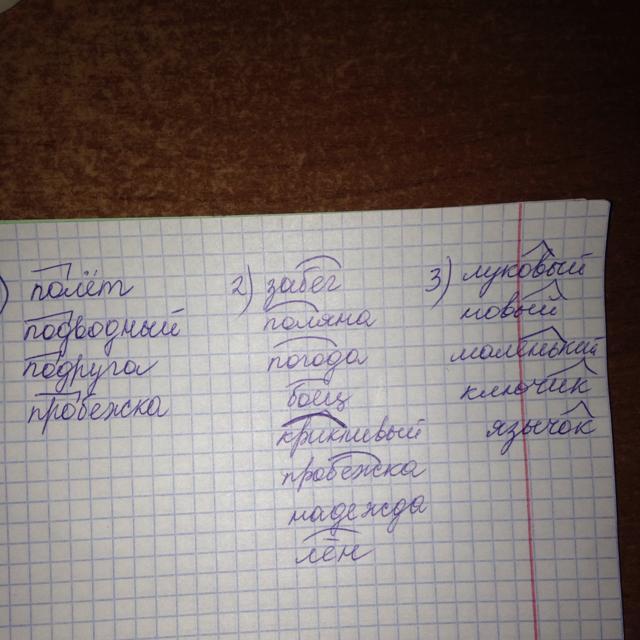 ) полёт
подводный
подруга
пробежка
2) забег
поляна
погода
боец
крикливый
пробежка
надежда
лён
3) луковый
новый
маленький
ключик
язычок